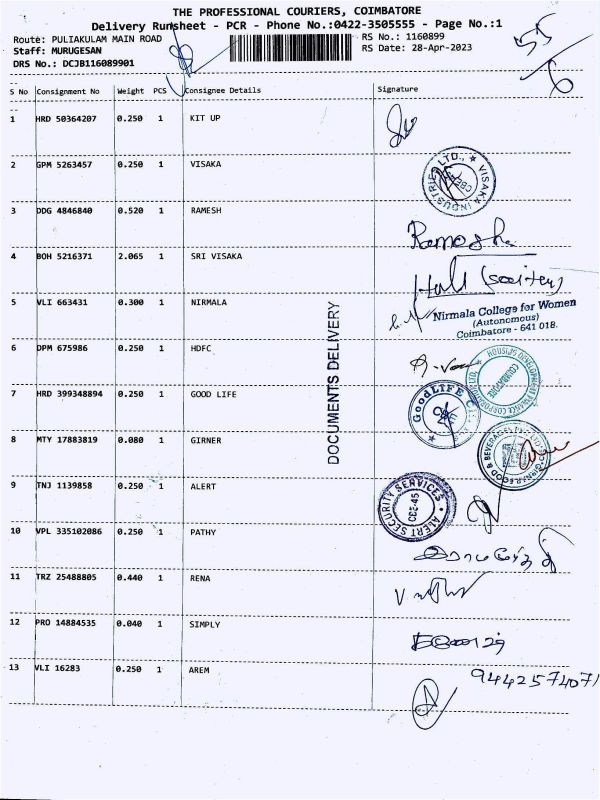 THE PROFESSIONAL COURIERS, COIMBATORE
Delivery Runsheet - PCR - Phone No.:0422-3505555 - Page No.:1
Route: PULIAKULAM MAIN ROAD RS No.: 1160899
Staff: MURUGESAN RS Date: 28-Apr-2023
DRS No.: DCJB116089901
55
6
S No Consignment No Weight PCS Consignee Details Signature
1 HRD 50364207 0.250 1 KIT UP
2 GPM 5263457 0.250 1 VISAKA
VISAKA INDUSTRIES LTD.,
3 DDG 4846840 0.520 1 RAMESH
4 BOH 5216371 2.065 1 SRI VISAKA
5 VLI 663431 0.300 1 NIRMALA
Nirmala College for Women
(Autonomous)
Coimbatore - 641 018.
DOCUMENTS DELIVERY
6 DPM 675986 0.250 1 HDFC
HOUSING DEVELOPMENT FINANCE CORPORATION LTD
COIMBATORE
7 HRD 399348894 0.250 1 GOOD LIFE
GoodLIFE
8 MTY 17883819 0.080 1 GIRNER
FOOD & BEVERAGES
9 TNJ 1139858 0.250 1 ALERT
ALERT SECURITY SERVICES
CBE-45
10 VPL 335102086 0.250 1 PATHY
11 TRZ 25488805 0.440 1 RENA
12 PRO 14884535 0.040 1 SIMPLY
13 VLI 16283 0.250 1 AREM
9442574071